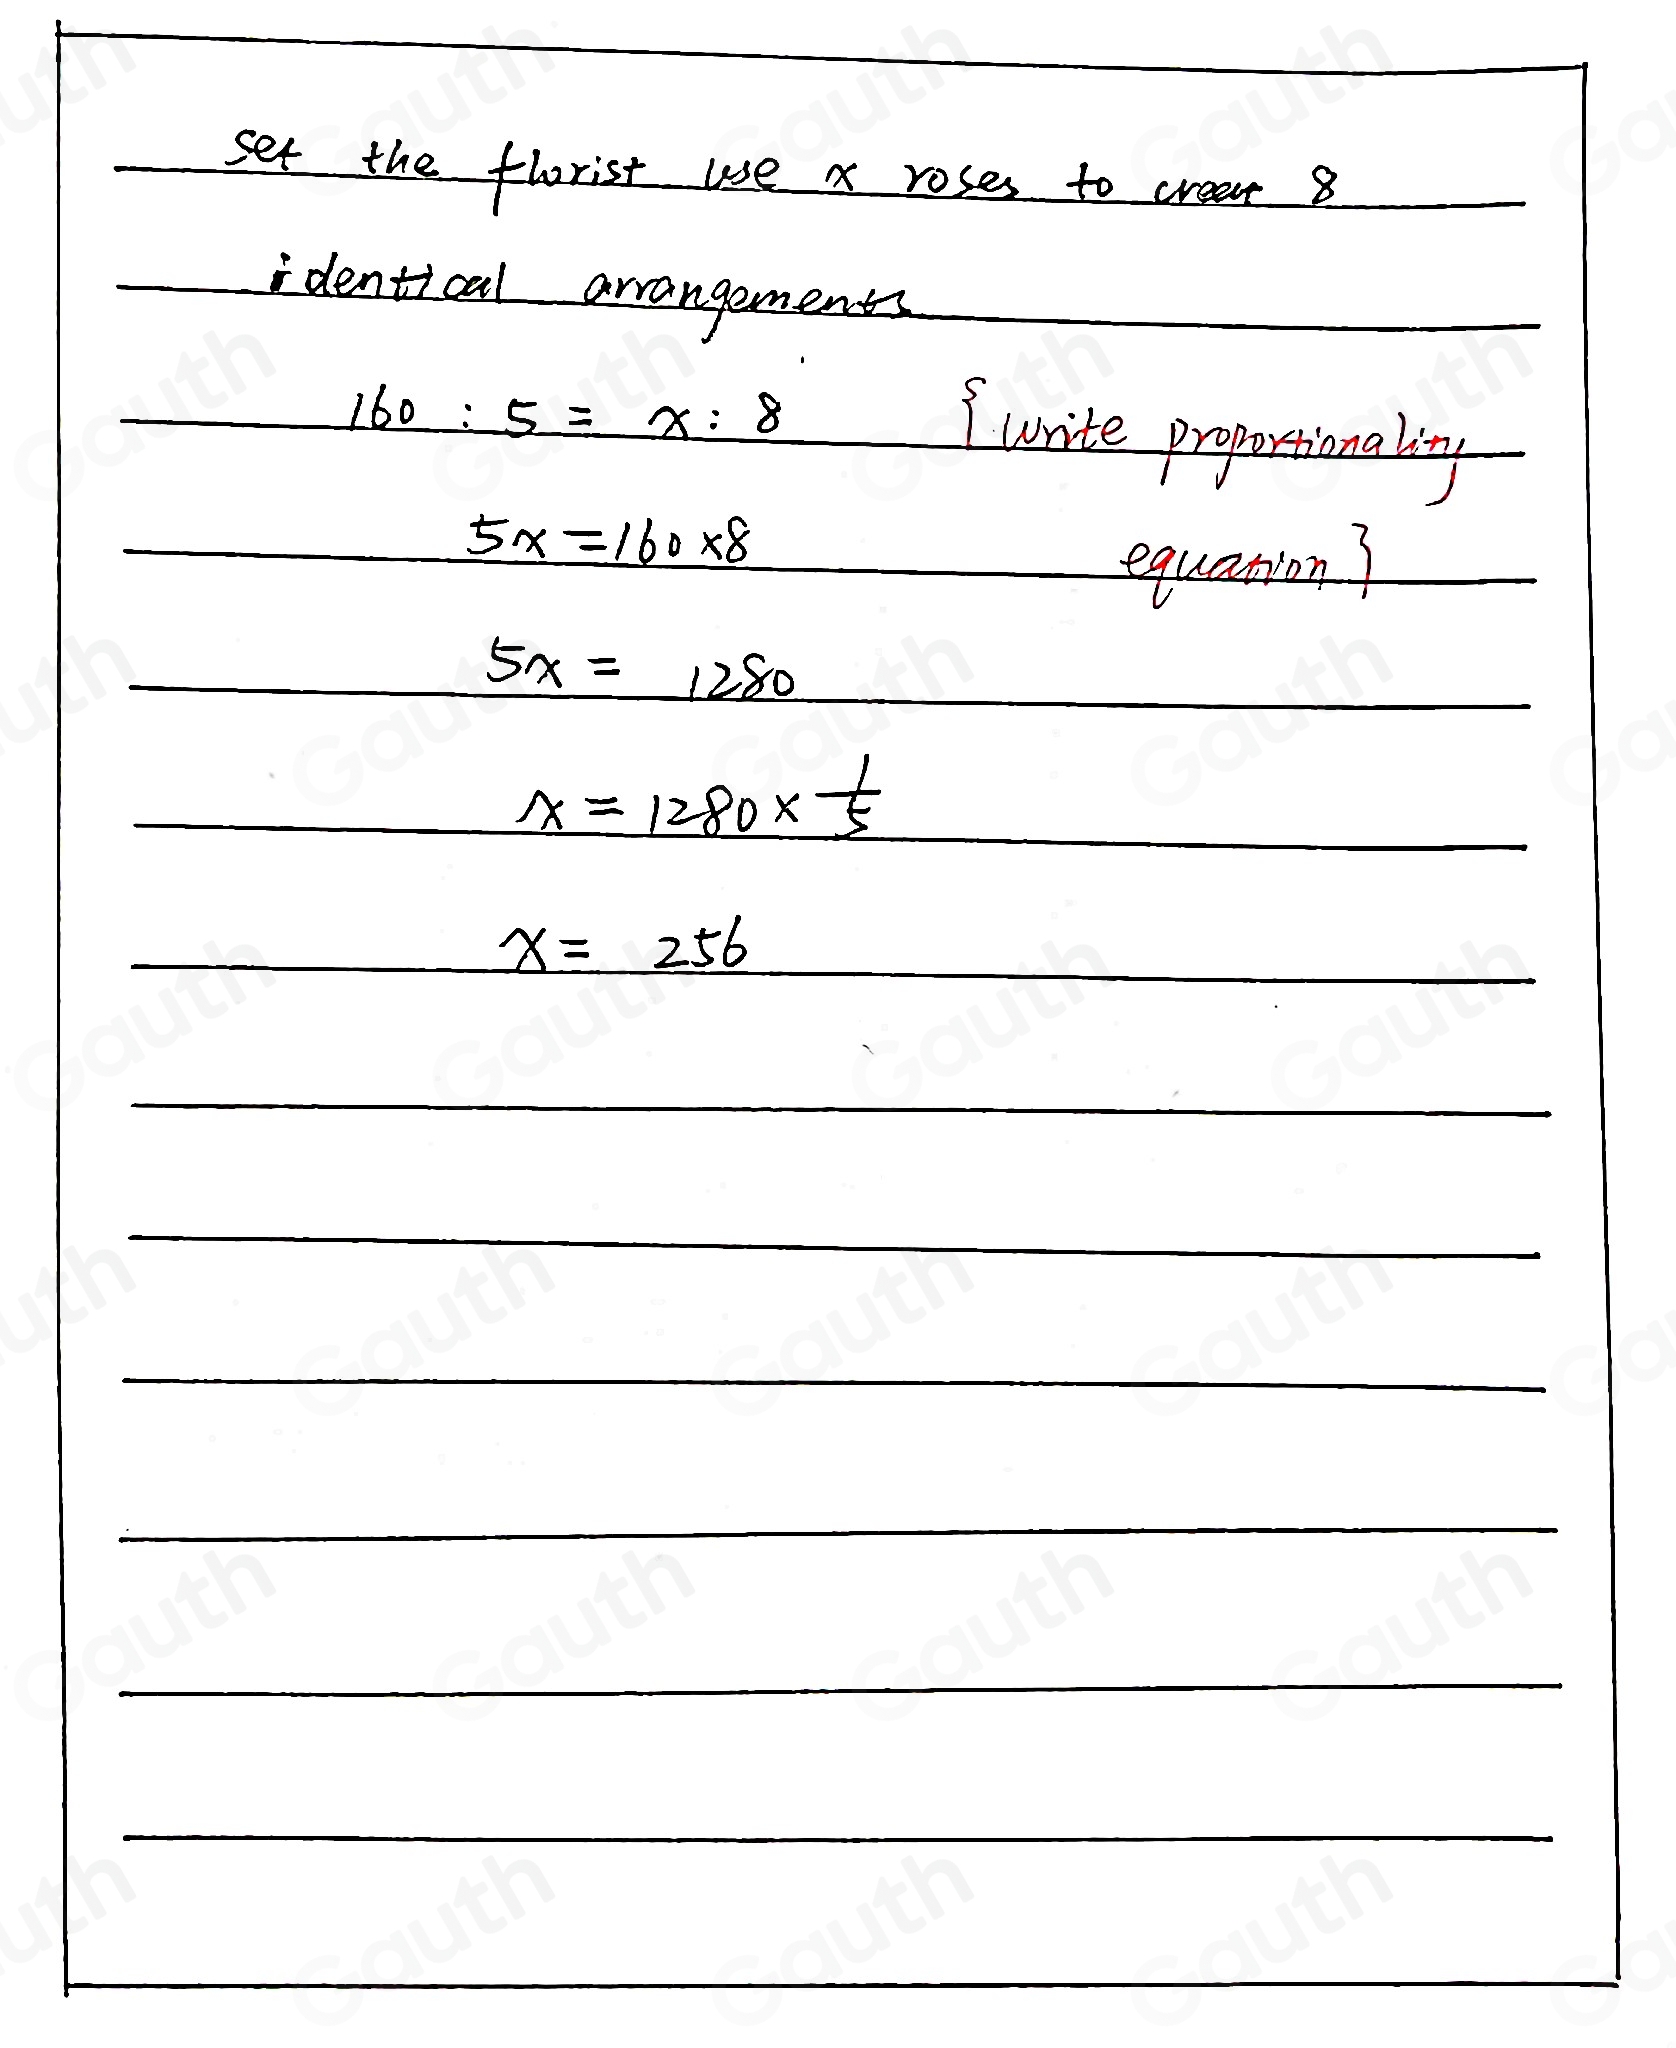 set the florist use x roses to creat 8
identical arrangements
160 : 5 = x : 8 {write proportionality
5x = 160 × 8 equation}
5x = 1280
x = 1280 × 1/5
x = 256